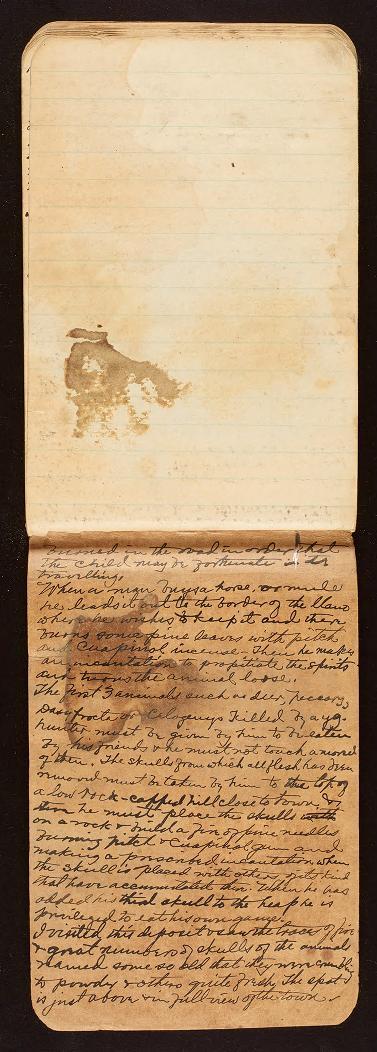 burned in the road in order that
the child may be fortunate in its
travelling.
When a man buys a horse, or mule
he leads it out to the border of the llano
where he wishes to keep it and there
burns some pine leaves with pitch
and Cuapinol incense - Then he makes
an incantation to propitiate the spirits
and turns the animal loose.
The first 3 animals such as deer, peccary,
Dasyprocta or Celogenys killed by a yg.
hunter must be given by him to be eaten
by his friends & he must not touch a morsel
of them. The skulls from which all flesh has been
removed must be taken by him to the top of
a low rock-capped hill close to town, &
he must place the skulls with
on a rock & build a fire of pine needles
burning pitch & Cuapinol gum and
making a prescribed incantation when
the skull is placed with others of its kind
that have accumulated there. When he has
added his third skull to the heap he is
privileged to eat his own game.
I visited this deposit & saw the traces of fire
& great numbers of skulls of the animals
named some so old that they were crumbling
to powder & others quite fresh, the spot
is just above & in full view of the town.